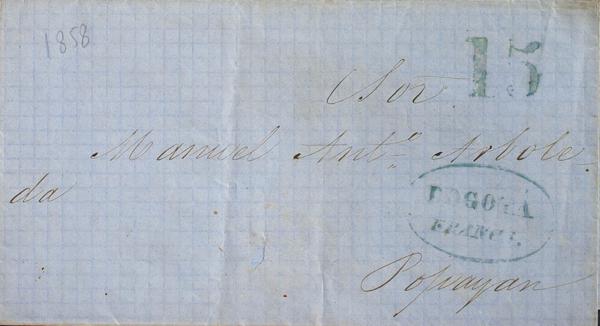 1858
15
Sor.
Manuel Anto. Arbole-
da
BOGOTÁ
FRANCA.
Popayan